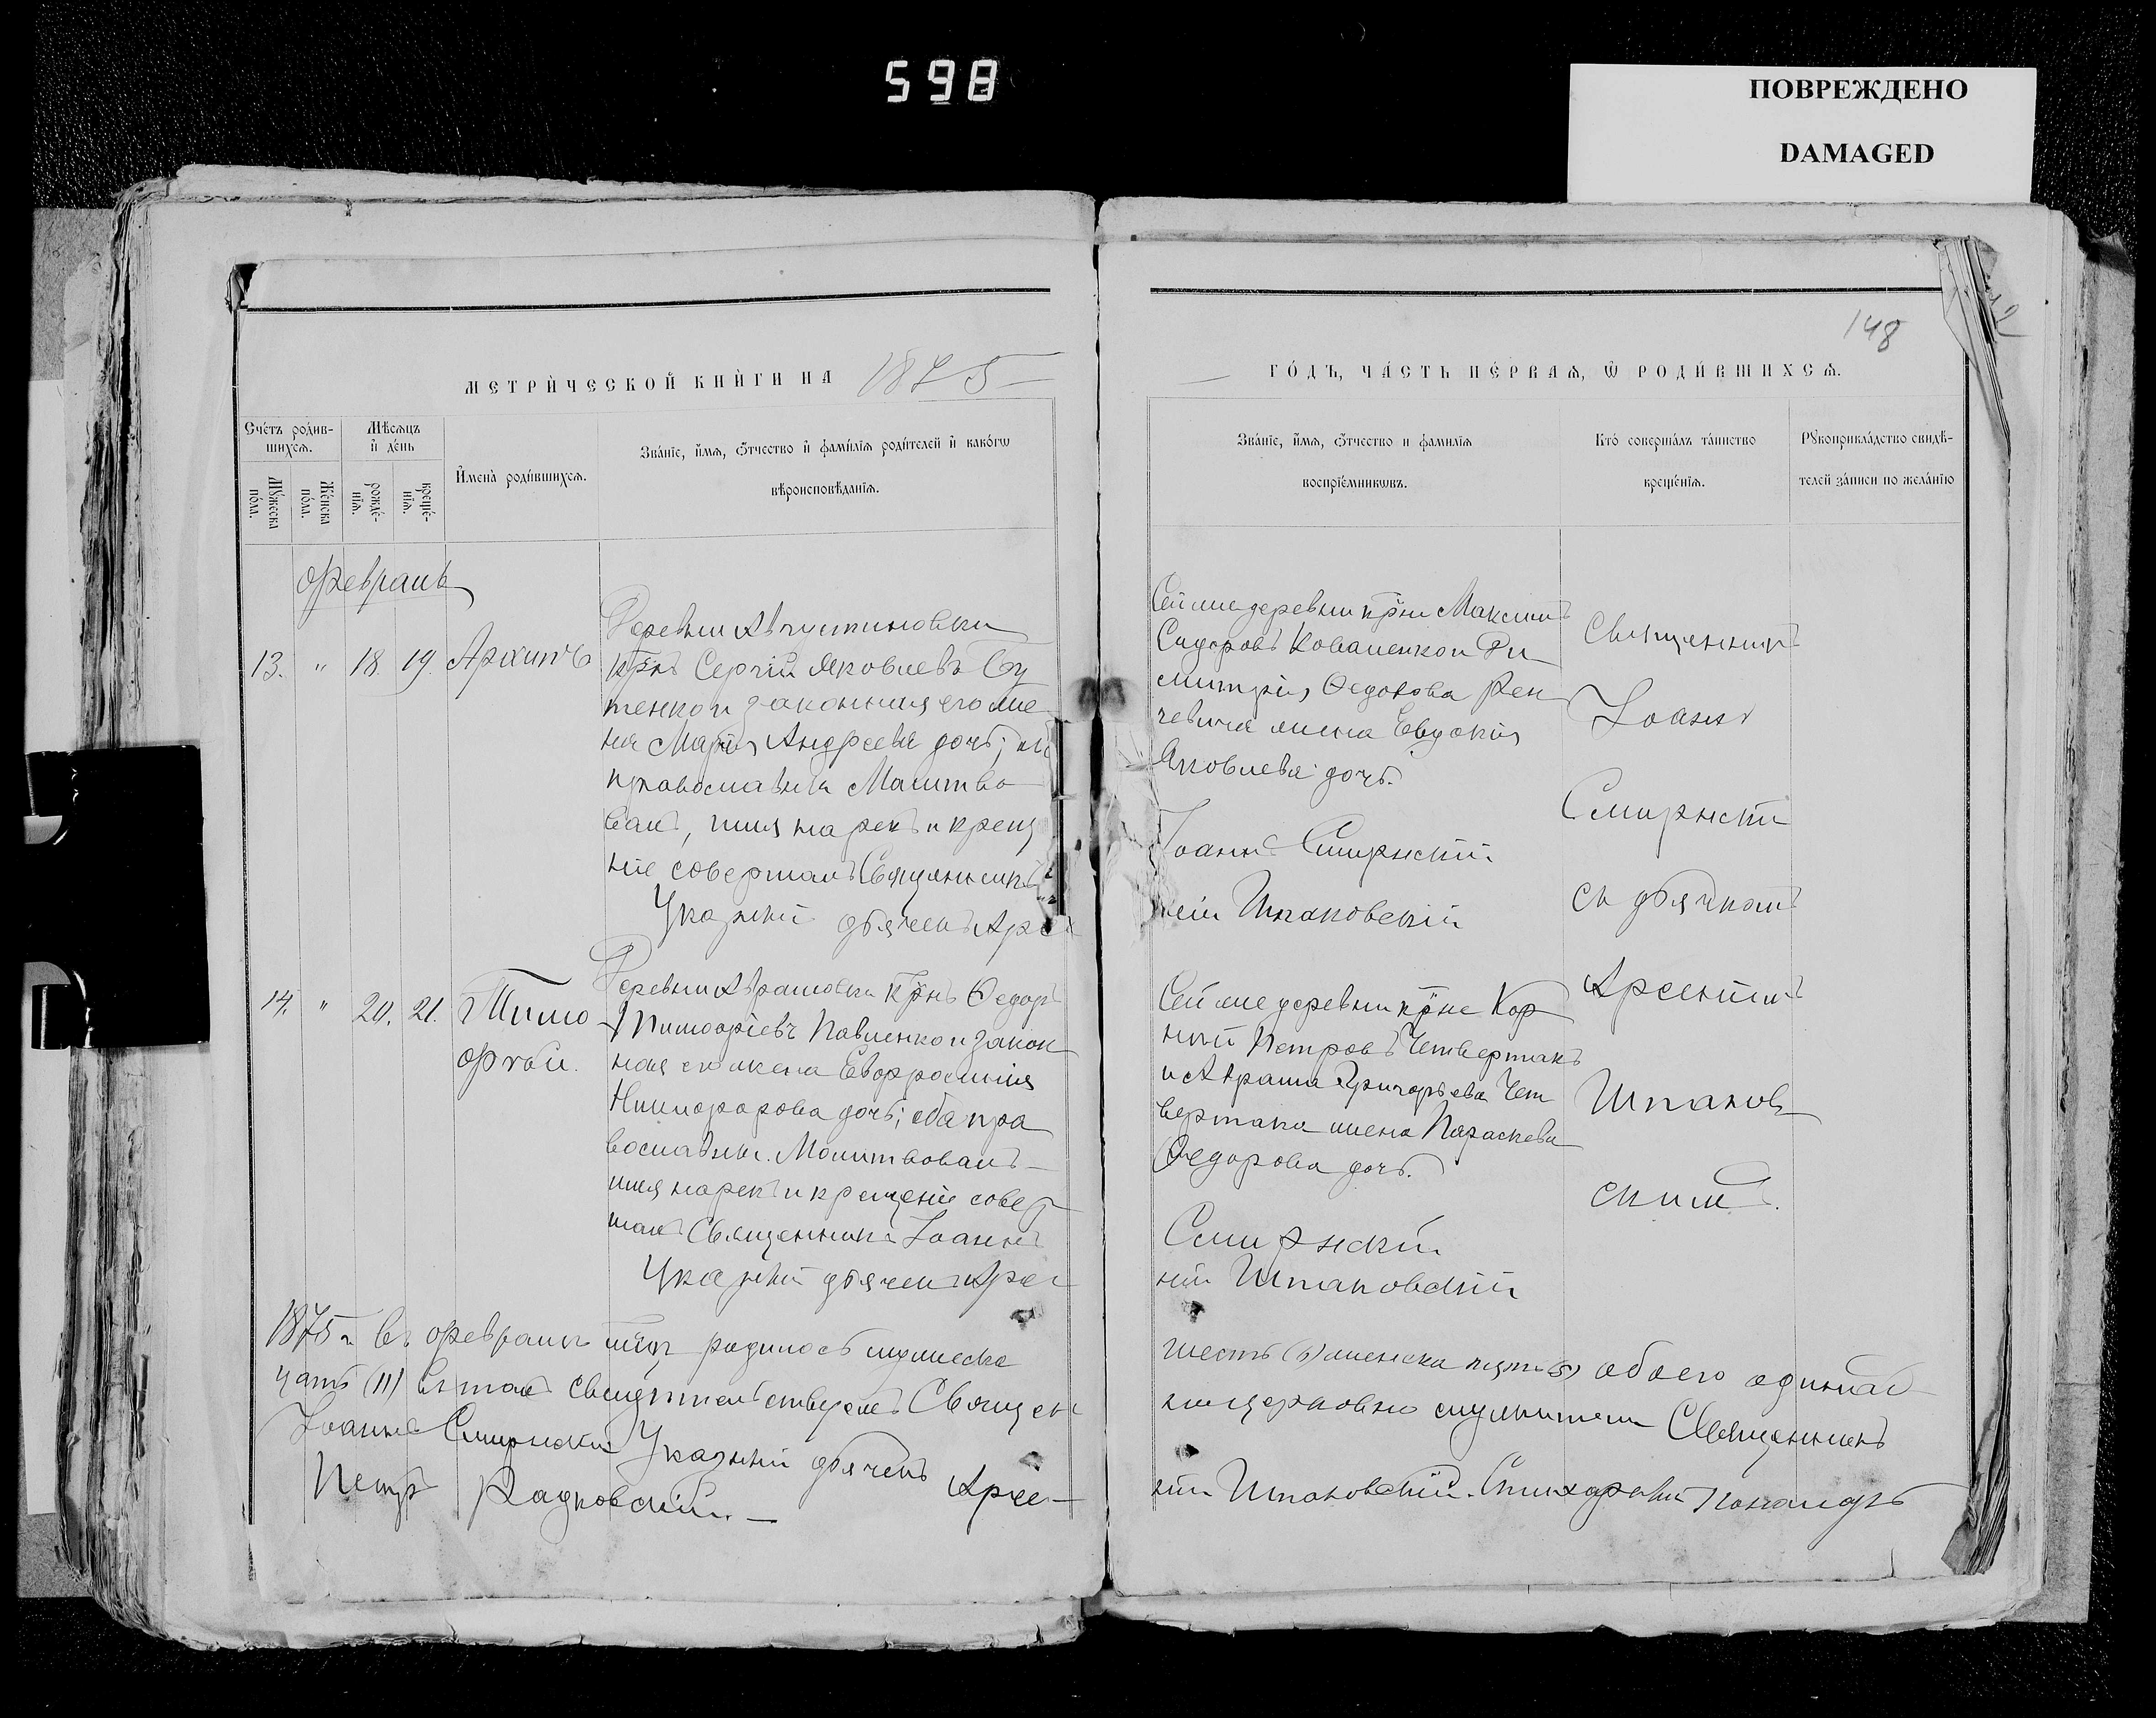 598
ПОВРЕЖДЕНО
DAMAGED
148
МЕТРИ́ЧЕСКОЙ КНИ́ГИ НА 1875
ГО́ДЪ, ЧА́СТЬ ПЕ́РВАѦ, Ѡ РОДИ́ВШИХСѦ.
Сче́тъ роди́в-
шихсѧ.
Мꙋ́жеска
по́ла.
Же́нска
по́ла.
Мѣ́сѧцъ
и҆ де́нь
рожде́-
нїѧ.
креще́-
нїѧ.
И҆мена̀ роди́вшихсѧ.
Зва́нїе, и҆́мѧ, ѻ҆́тчество и҆ фами́лїѧ роди́телей и҆ како́гѡ
вѣроисповѣ́данїѧ.
Зва́нїе, и҆́мѧ, ѻ҆́тчество и фамилїѧ
воспрїе́мникѡвъ.
Кто̀ соверша́лъ та́инство
креще́нїѧ.
Рꙋкоприкла́дство свидѣ́-
телей за́писи по жела́нїю
Февраль
13. " 18. 19. Архипъ
Деревни Августиновки
крнъ Сергій Яковлевъ Бу
тенко и законная его же
на Марія Андреева дочь;
православны Молитво
валъ, имя нарекъ и крещ
ніе совершалъ Священникъ
Указный дьячекъ Арсе
Сей же деревни крне Максимъ
Сидоровъ Коваленко и Ди
митрія Федотова
жена Евдокія
Яковлева дочь.
Іоаннъ Смирнскій
ній Шпаковскій
Священникъ
Іоаннъ
Смирнскій
съ дьячкомъ
Арсеніемъ
Шпаков
скимъ.
14. " 20. 21. Тимо
фѣй.
Деревни Аврамовки крнъ Федоръ
Тимофіевъ Павленко и закон
ная его жена Евфросинія
Никифорова дочь; оба пра
вославны. Молитвовалъ
имя нарекъ и крещеніе совер
шалъ Священникъ Іоаннъ
Указный дьячекъ Арсе
Сей же деревни крне Кор
нилій Петровъ Четвертакъ
и Аврама Григорьева Чет
вертака жена Параскева
Федорова дочь.
Смирнскій
ній Шпаковскій
1875 г. въ февралѣ мцѣ родилось мужеска
шесть (6) женска пять (5) обоего одинад
цать (11) въ томъ свидѣтельствуемъ Священ
ноцерковно служители Священникъ
Іоаннъ Смирнскій Указный дьячекъ Арсе
ній Шпаковскій. Стихарный Пономарь
Петръ Радковскій.